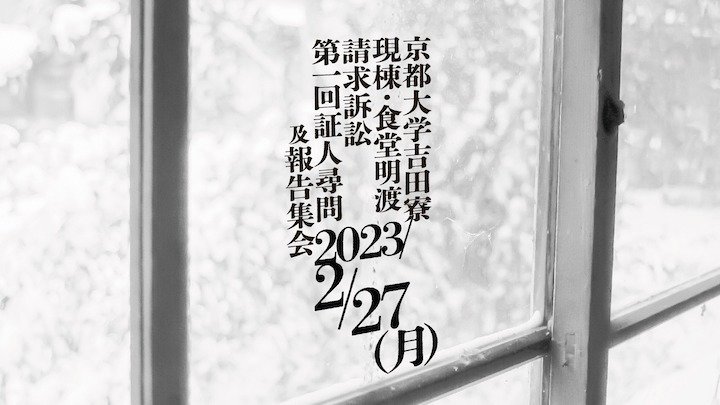 京都大学吉田寮
現棟・食堂明渡
請求訴訟
第一回証人尋問
及報告集会
2023/
2/27
(月)